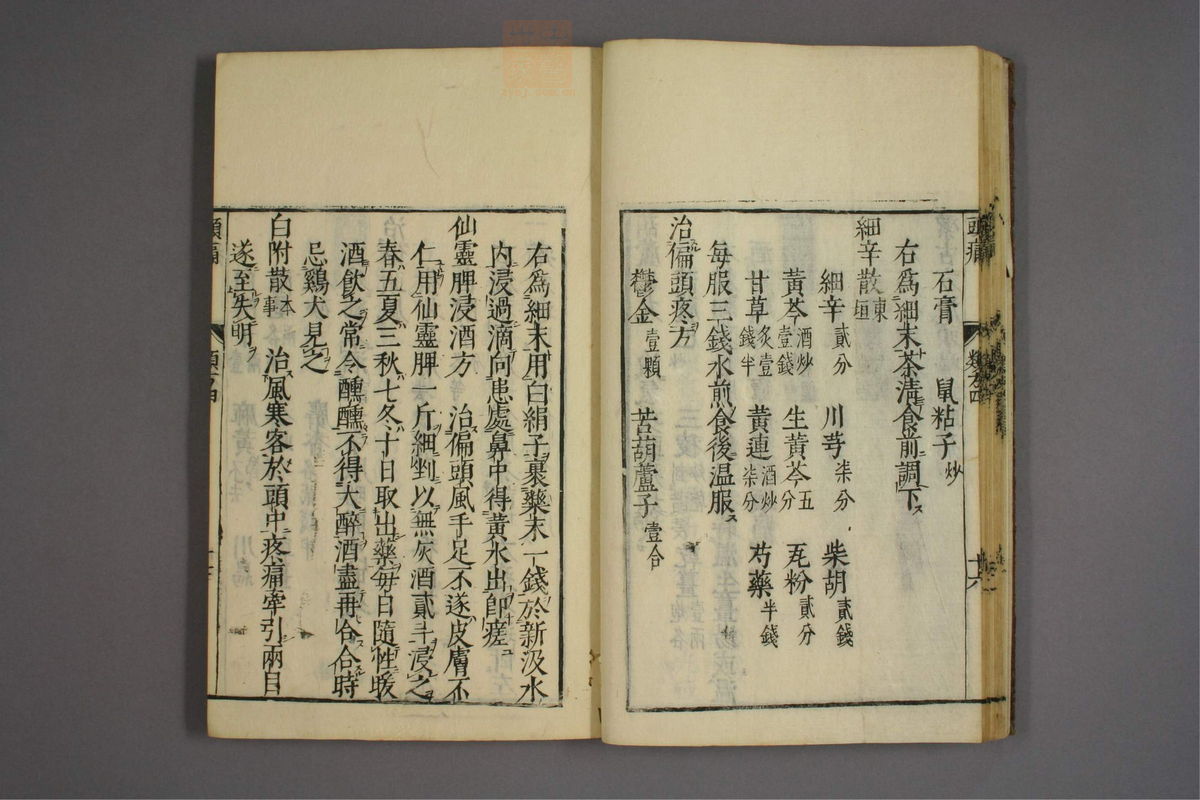 頭痛 類方四 十六
石膏 鼠粘子炒
右爲細末茶清食前調下
細辛散東垣
細辛貳分 川芎柒分 柴胡貳錢
黃芩酒炒壹錢 生黃芩五分 瓦粉貳分
甘草炙壹錢半 黃連酒炒柒分 芍藥半錢
每服三錢水煎食後温服
治偏頭疼方
鬱金壹顆 苦葫蘆子壹合
右爲細末用白絹子裹藥末一錢於新汲水
内浸過滴向患處鼻中得黃水出卽瘥
仙靈脾浸酒方 治偏頭風手足不遂皮膚不
仁用仙靈脾一斤細剉以無灰酒貳斗浸之
春五夏三秋七冬十日取出藥每日隨性暖
酒飲之常令醺醺不得大醉酒盡再合合時
忌鷄犬見之
白附散本事 治風寒客於頭中疼痛牽引兩目
遂至失明
頭痛 類方四